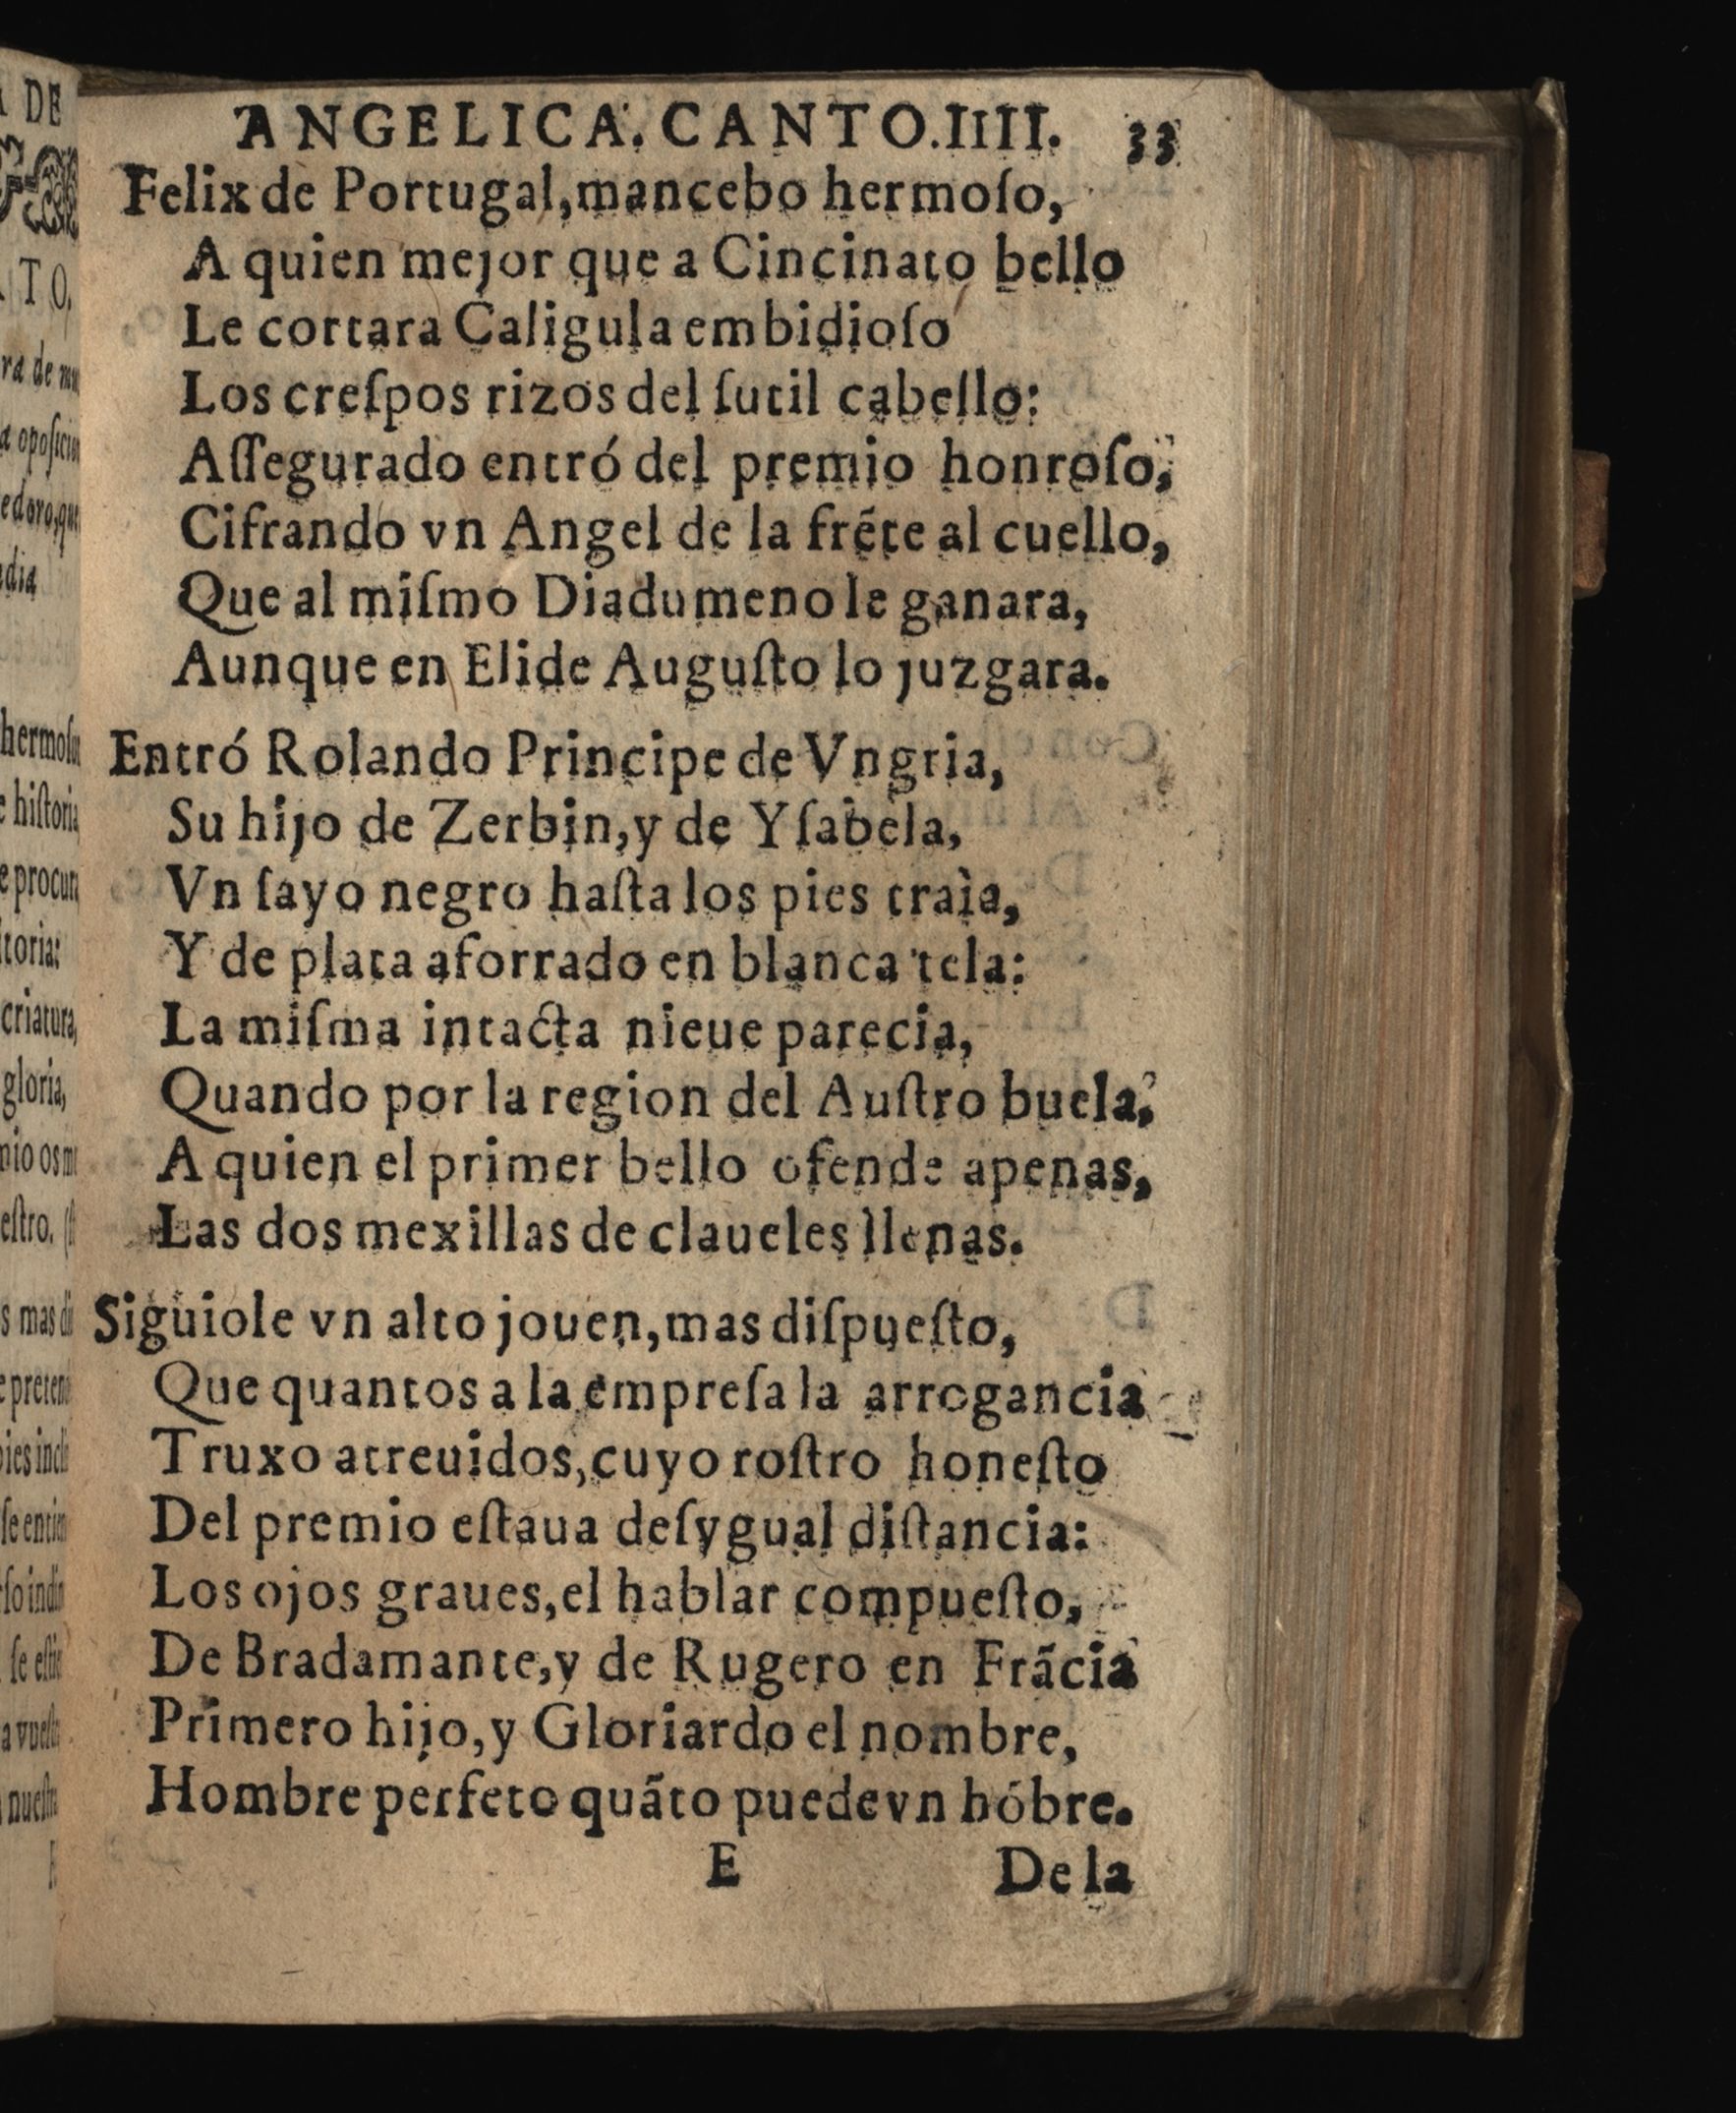 ANGELICA. CANTO.IIII. 33
Felix de Portugal,mancebo hermoſo,
A quien mejor que a Cincinato bello
Le cortara Caligula embidioſo
Los creſpos rizos del ſutil cabello:
Aſſegurado entró del premio honroſo,
Cifrando vn Angel de la frẽte al cuello,
Que al miſmo Diadumeno le ganara,
Aunque en Elide Auguſto lo juzgara.
Entró Rolando Principe de Vngria,
Su hijo de Zerbin,y de Yſabela,
Vn ſayo negro haſta los pies traìa,
Y de plata aforrado en blanca tela:
La miſma intacta nieue parecia,
Quando por la region del Auſtro buela,
A quien el primer bello ofende apenas,
Las dos mexillas de claueles llenas.
Siguiole vn alto jouen,mas diſpueſto,
Que quantos a la empreſa la arrogancia
Truxo atreuidos,cuyo roſtro honeſto
Del premio eſtaua deſygual diſtancia:
Los ojos graues,el hablar compueſto,
De Bradamante,y de Rugero en Frãcia
Primero hijo,y Gloriardo el nombre,
Hombre perfeto quãto puede vn hóbre.
E De la